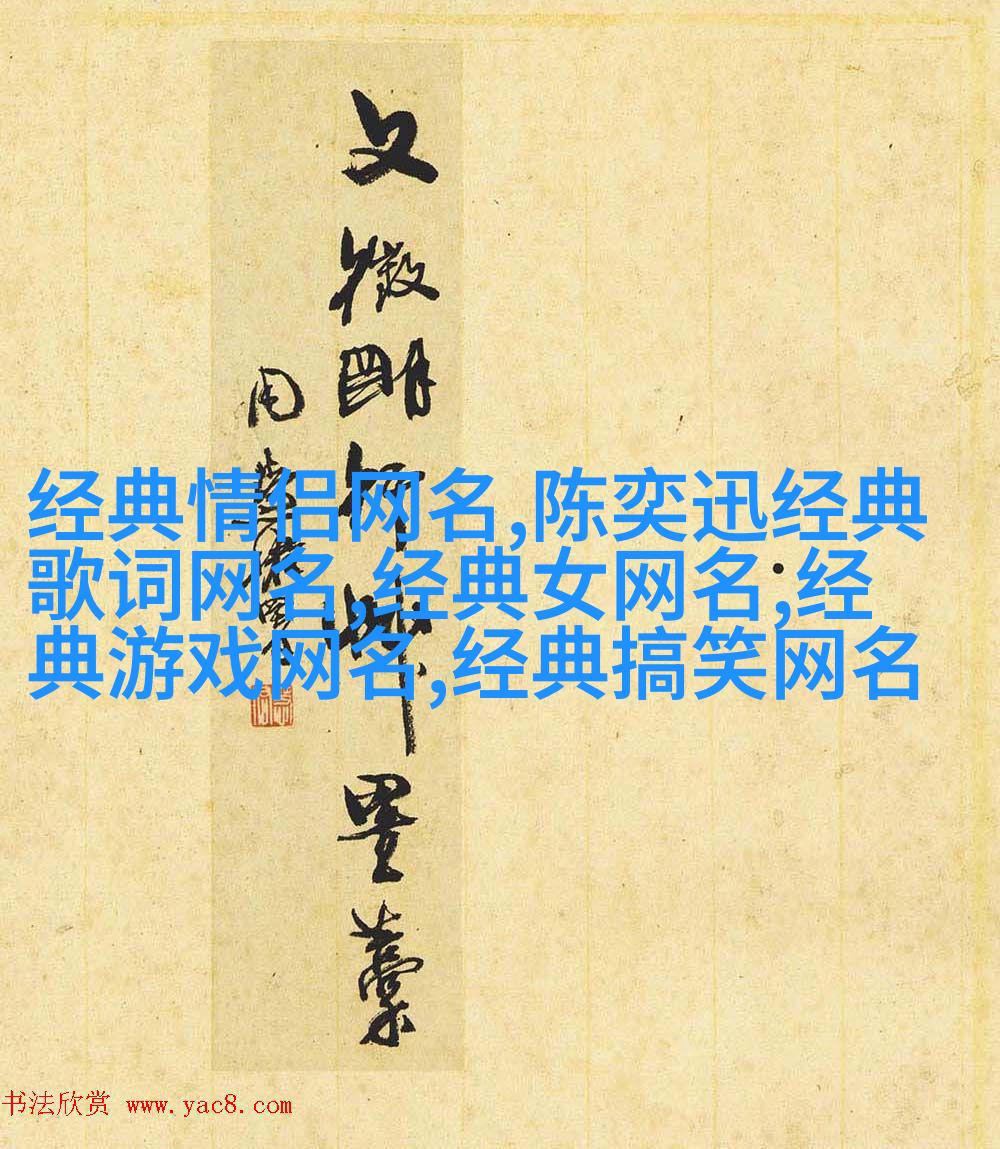 文徵明行草墨藁
経典情侣网名,陈奕迅经典
歌词网名,经典女网名;经
典游戏网名,经典搞笑网名
书法欣赏 www.yac8.com